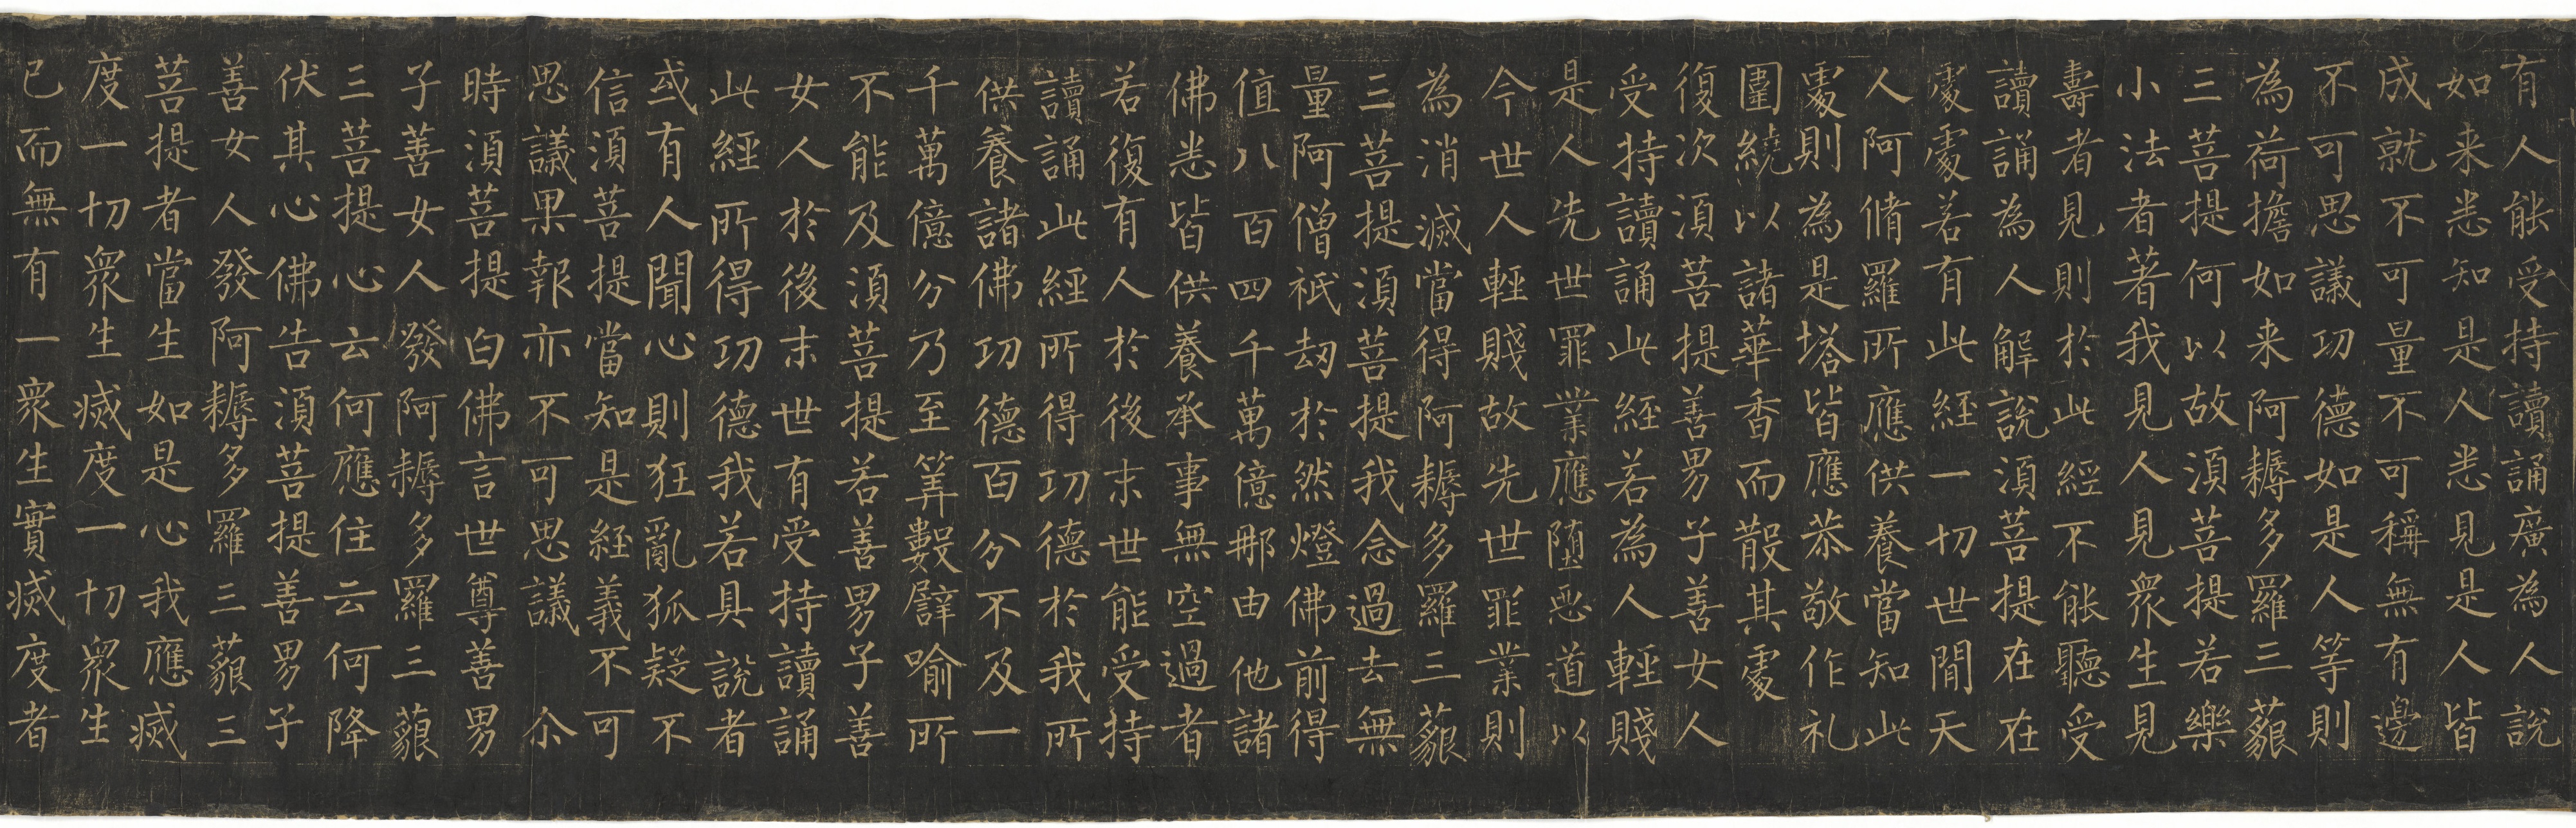 有人能受持讀誦廣為人說
如来悉知是人悉見是人皆
成就不可量不可稱無有邊
不可思議功德如是人等則
為荷擔如来阿耨多羅三藐
三菩提何以故須菩提若樂
小法者著我見人見衆生見
壽者見則於此經不能聽受
讀誦為人解說須菩提在在
處處若有此經一切世間天
人阿脩羅所應供養當知此
處則為是塔皆應恭敬作礼
圍繞以諸華香而散其處
復次須菩提善男子善女人
受持讀誦此經若為人輕賤
是人先世罪業應堕惡道以
今世人輕賤故先世罪業則
為消滅當得阿耨多羅三藐
三菩提須菩提我念過去無
量阿僧祇劫於然燈佛前得
值八百四千萬億那由他諸
佛悉皆供養承事無空過者
若復有人於後末世能受持
讀誦此經所得功德於我所
供養諸佛功德百分不及一
千萬億分乃至筭數譬喻所
不能及須菩提若善男子善
女人於後末世有受持讀誦
此經所得功德我若具說者
或有人聞心則狂亂狐疑不
信須菩提當知是經義不可
思議果報亦不可思議 尒
時須菩提白佛言世尊善男
子善女人發阿耨多羅三藐
三菩提心云何應住云何降
伏其心佛告須菩提善男子
善女人發阿耨多羅三藐三
菩提者當生如是心我應滅
度一切衆生滅度一切衆生
已而無有一衆生實滅度者